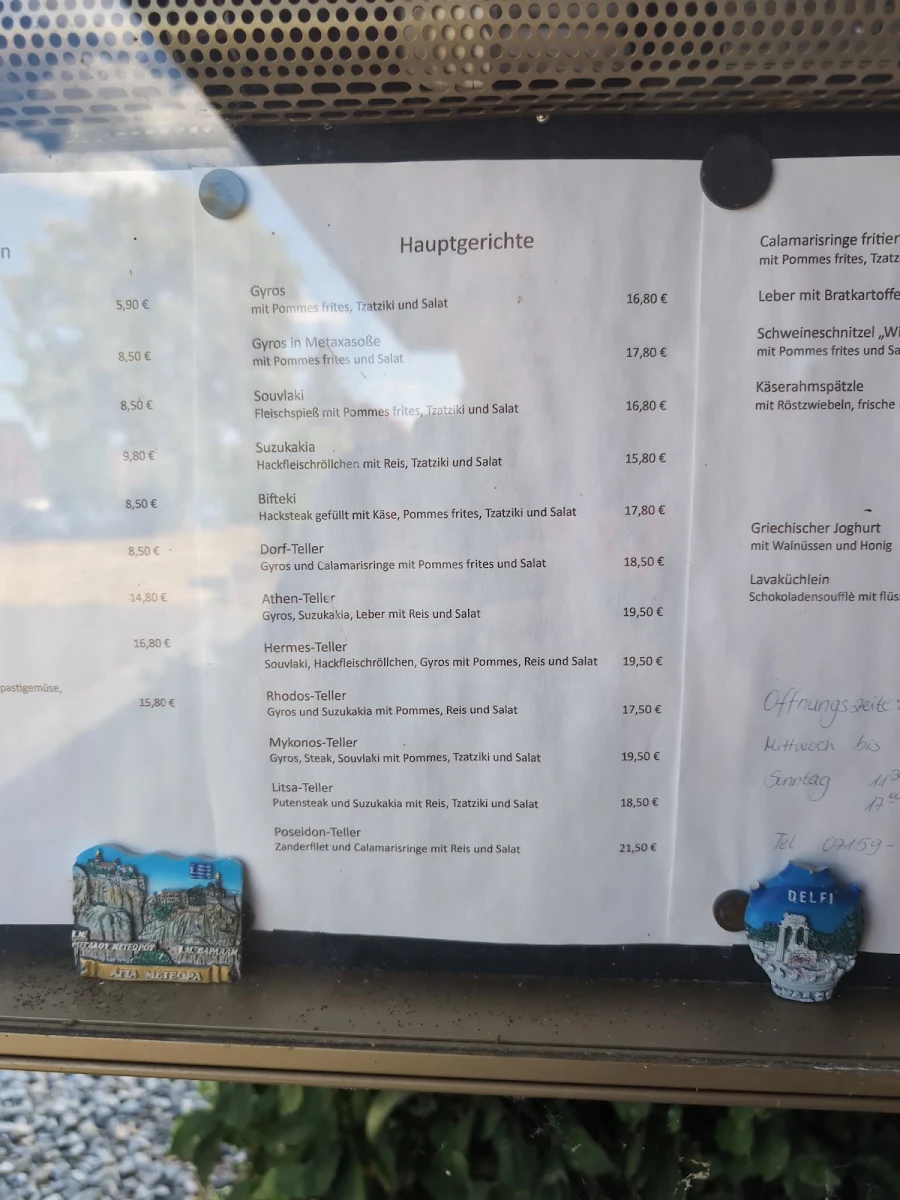 n
5,90 €
8,50 €
8,50 €
9,80 €
8,50 €
8,50 €
14,80 €
16,80 €
pastigemüse,
15,80 €
Hauptgerichte
Gyros
mit Pommes frites, Tzatziki und Salat 16,80 €
Gyros in Metaxasoße
mit Pommes frites und Salat 17,80 €
Souvlaki
Fleischspieß mit Pommes frites, Tzatziki und Salat 16,80 €
Suzukakia
Hackfleischröllchen mit Reis, Tzatziki und Salat 15,80 €
Bifteki
Hacksteak gefüllt mit Käse, Pommes frites, Tzatziki und Salat 17,80 €
Dorf-Teller
Gyros und Calamarisringe mit Pommes frites und Salat 18,50 €
Athen-Teller
Gyros, Suzukakia, Leber mit Reis und Salat 19,50 €
Hermes-Teller
Souvlaki, Hackfleischröllchen, Gyros mit Pommes, Reis und Salat 19,50 €
Rhodos-Teller
Gyros und Suzukakia mit Pommes, Reis und Salat 17,50 €
Mykonos-Teller
Gyros, Steak, Souvlaki mit Pommes, Tzatziki und Salat 19,50 €
Litsa-Teller
Putensteak und Suzukakia mit Reis, Tzatziki und Salat 18,50 €
Poseidon-Teller
Zanderfilet und Calamarisringe mit Reis und Salat 21,50 €
Calamarisringe fritier
mit Pommes frites, Tzatz
Leber mit Bratkartoffe
Schweineschnitzel „Wi
mit Pommes frites und Sa
Käserahmspätzle
mit Röstzwiebeln, frische
Griechischer Joghurt
mit Walnüssen und Honig
Lavaküchlein
Schokoladensoufflè mit flüs
Öffnungszeite
Mittwoch bis
Sonntag 11
17
Tel. 07159-
Ι.Μ.
ΜΕΓΑΛΟΥ ΜΕΤΕΩΡΟΥ Ι.Μ. ΒΑΡΛΑΑΜ
ΑΓΙΑ ΜΕΤΕΩΡΑ
DELFI